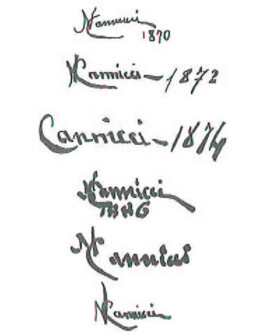 NCannicci
1870
NCannicci 1872
Cannicci 1874
NCannicci
NCannicci
NCannicci